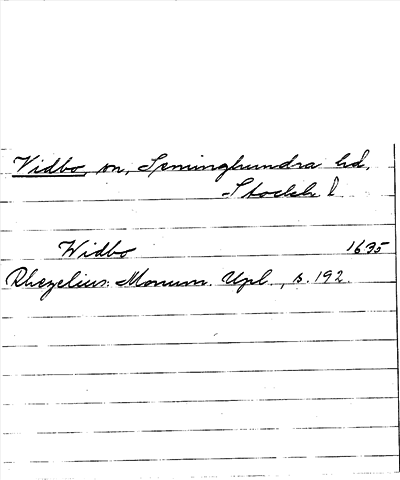 Vidbo, sn, Seminghundra hd,
Stockh l
Widbo 1635
Rhezelius: Monum. Upl., s. 192.